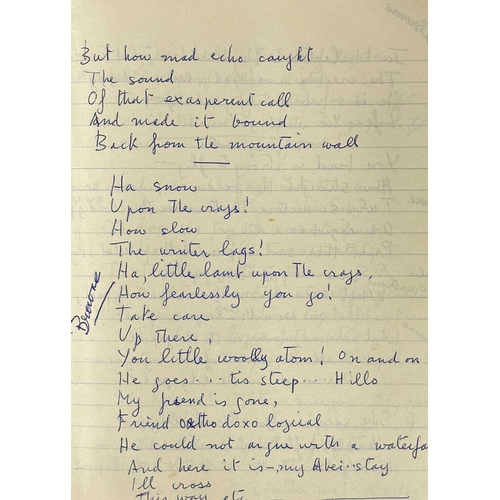 But how mad echo caught
The sound
Of that exasperent call
And made it bound
Back from the mountain wall
Ha snow
Upon the crags!
How slow
The winter lags!
Ha, little lamb upon the crags,
How fearlessly you go!
Take care
Up there,
You little woolly atom! On and on
He goes... tis steep... Hillo
My friend is gone,
Friend orthodoxo logical
He could not argue with a waterfa
And here it is - my Abei.. stay
Ill cross
This way, etc
Browne
Browne